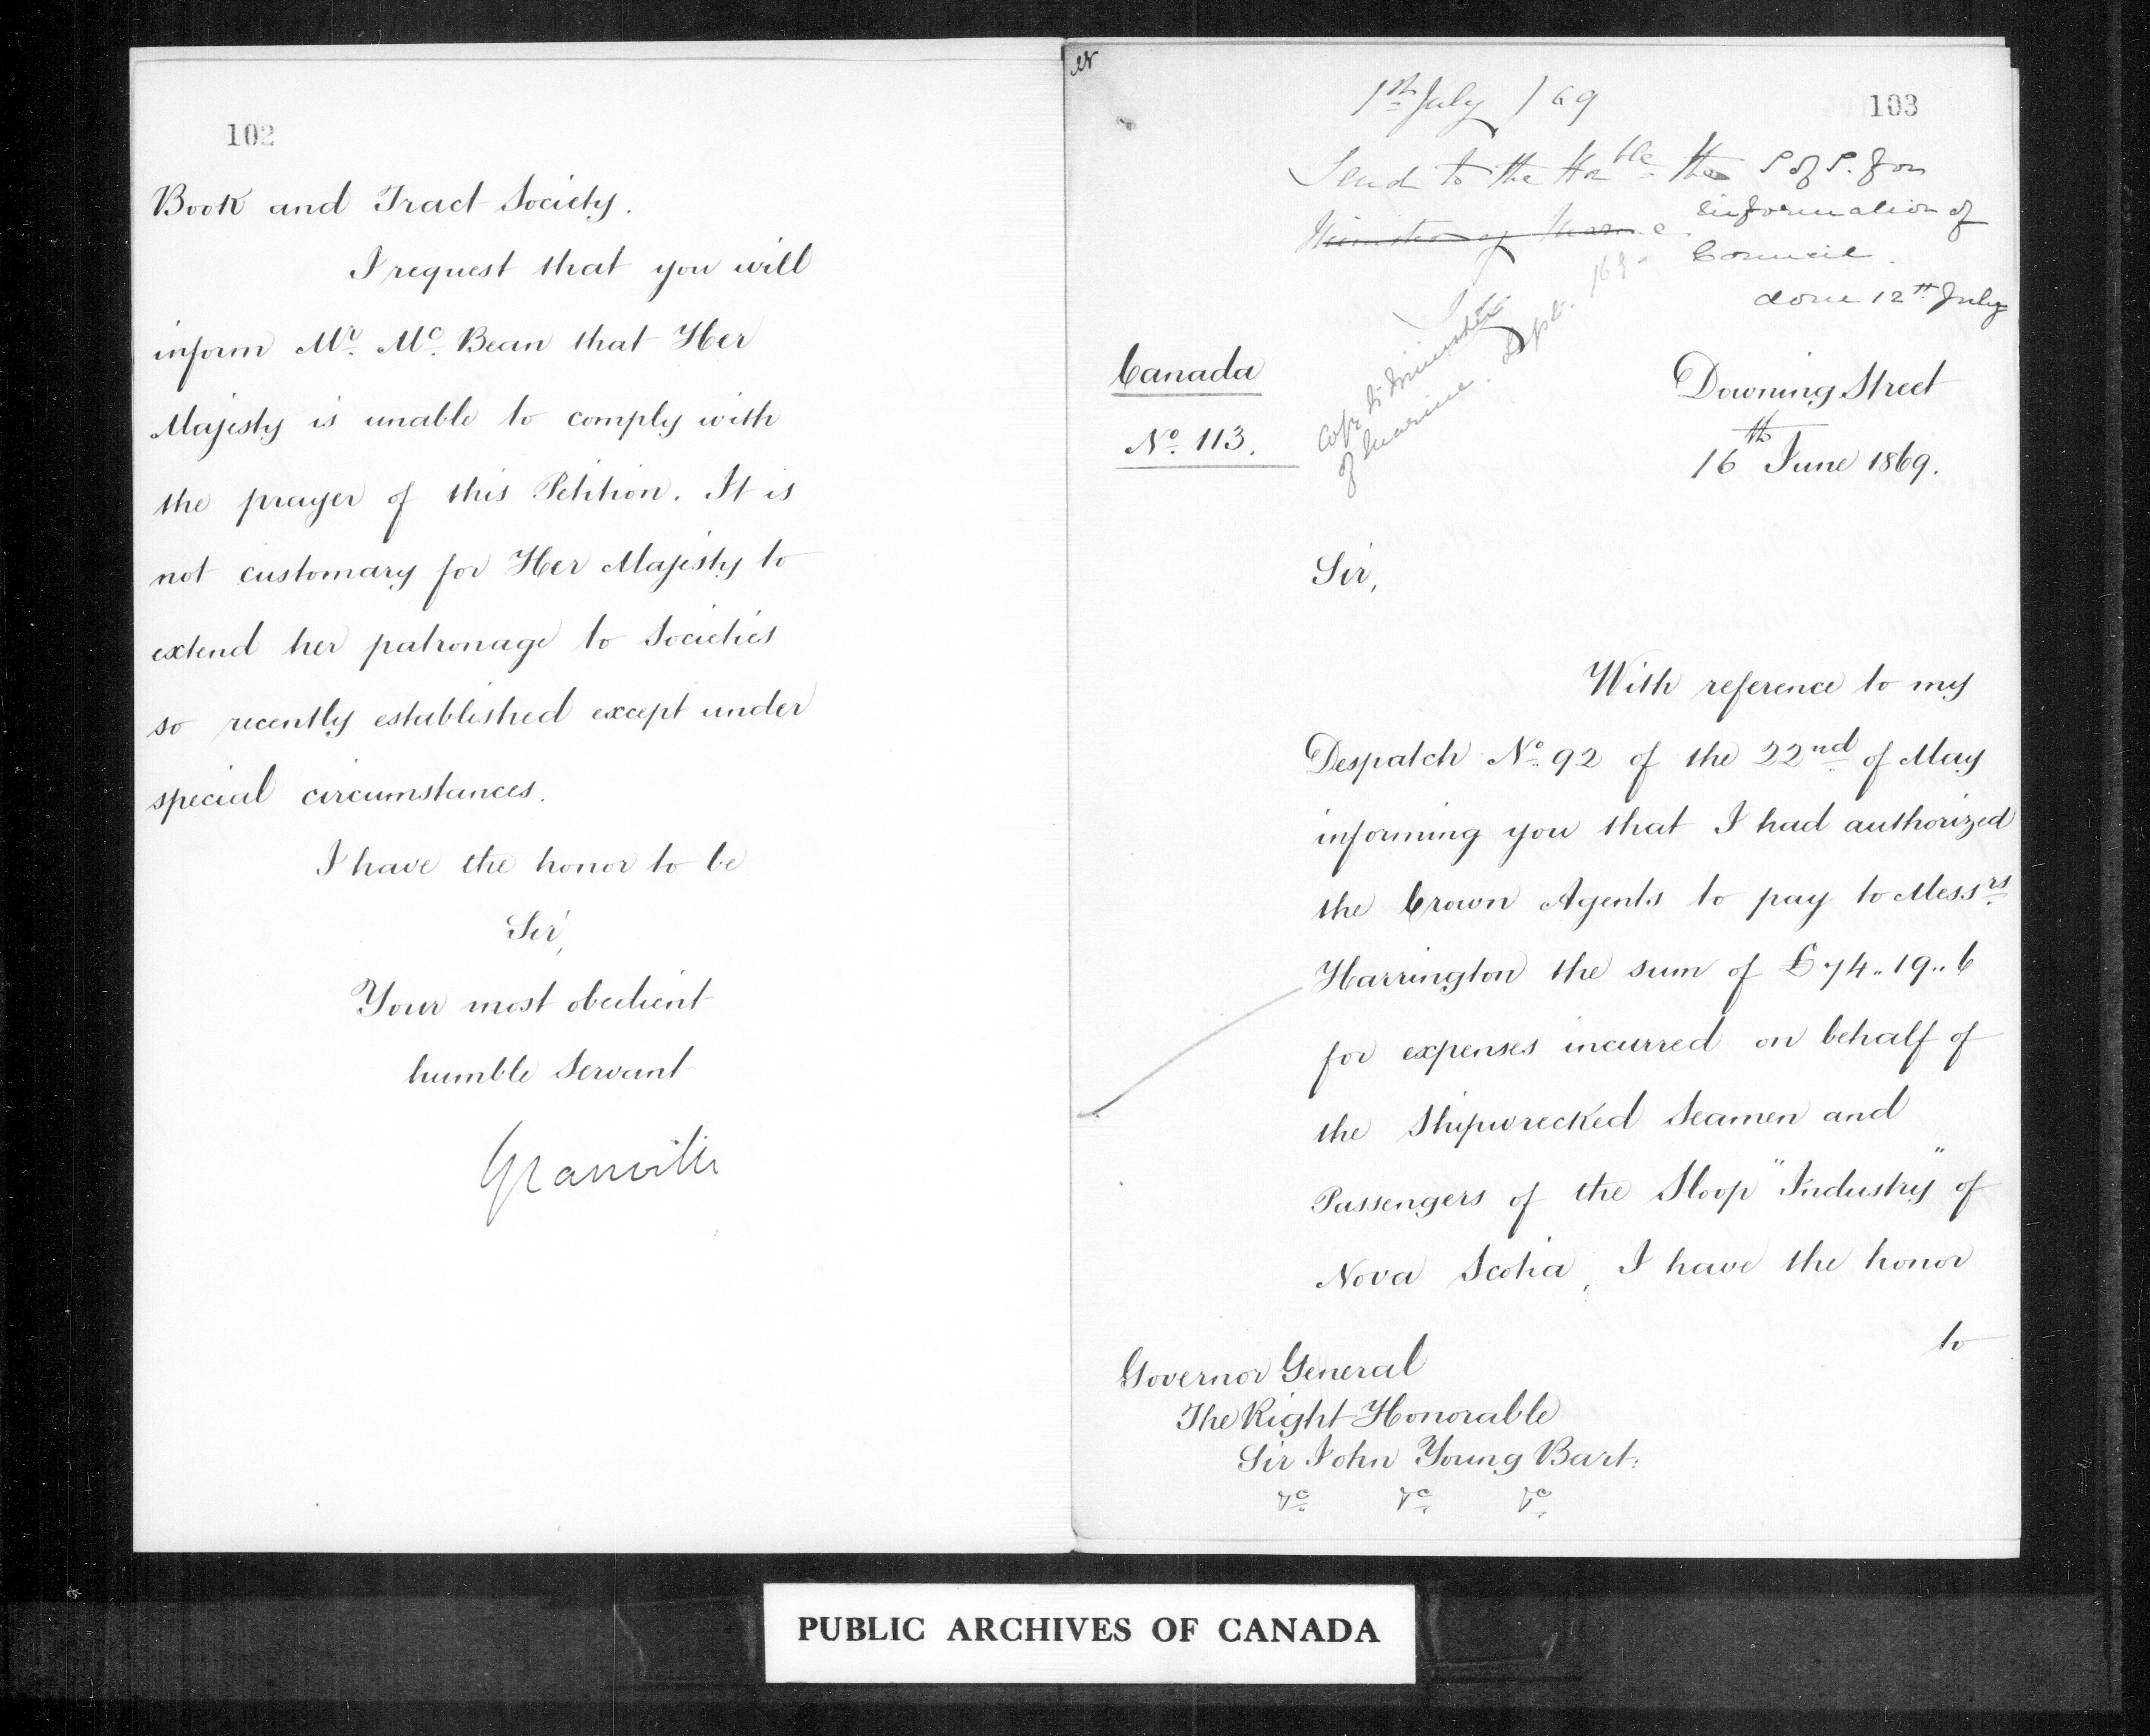 102
Book and Tract Society.
I request that you will
inform Mr. Mc. Bean that Her
Majesty is unable to comply with
the prayer of this Petition. It is
not customary for Her Majesty to
extend her patronage to Societies
so recently established except under
special circumstances.
I have the honor to be
Sir,
Your most obedient
humble Servant
Granville
103
1st July /69
Send to the Honble the P of P. for
information of
Minister of Marine
Council.
done 12th July
Copy to Minister
of Marine. Sept.
Canada
No. 113.
Downing Street
16th June 1869.
Sir,
With reference to my
Despatch No. 92 of the 22nd of May
informing you that I had authorized
the Crown Agents to pay to Messrs
Harrington the sum of £74..19..6
for expenses incurred on behalf of
the Shipwrecked Seamen and
Passengers of the Sloop "Industry" of
Nova Scotia, I have the honor
to
Governor General
The Right Honorable
Sir John Young Bart:
&c. &c. &c.
PUBLIC ARCHIVES OF CANADA